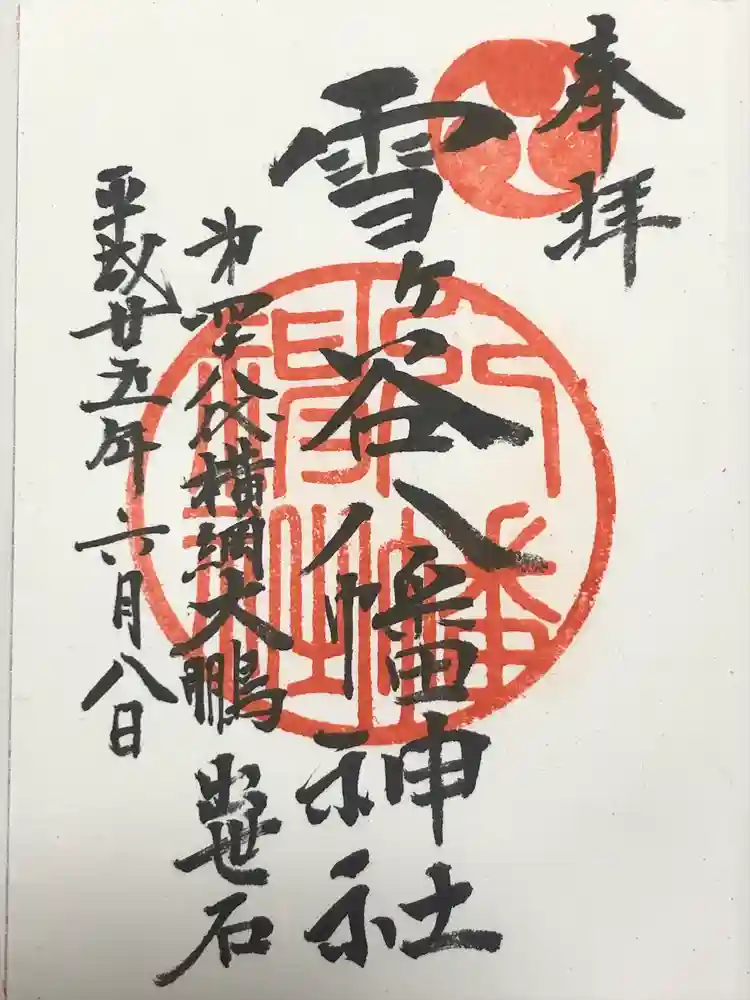 奉拝
雪ヶ谷八幡神社
第四十八代横綱大鵬 出世石
平成廿五年六月八日
八幡神社